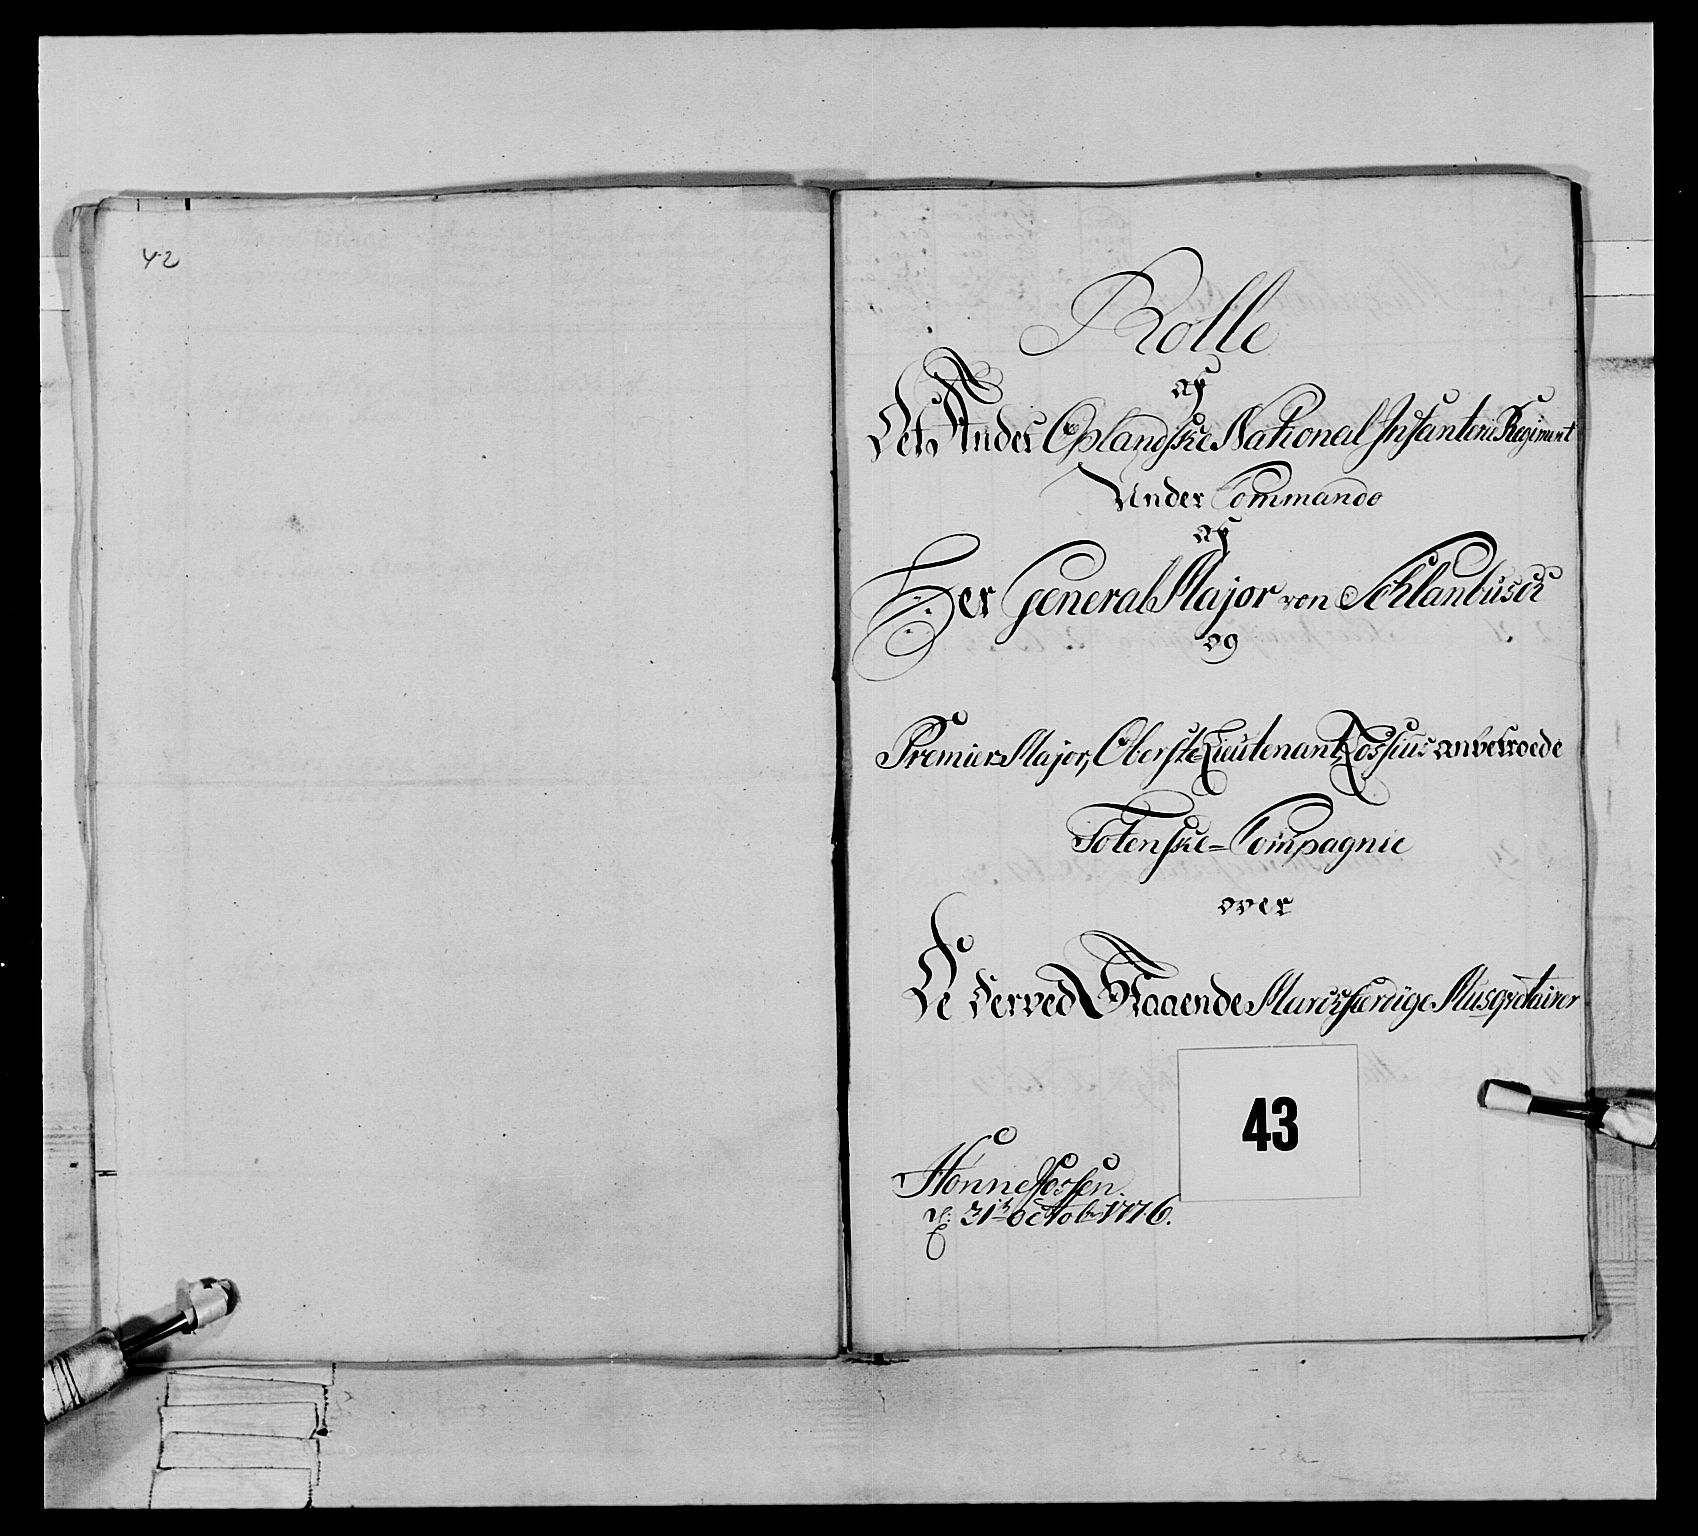 42
Rolle
af
Det Andet Oplandske National Infanterie Regiment
Under Commando
af
Her General Major von Schlanbusch
og
Premier-Major, Oberste Lieutenant Rossius anbetroede
Totenske-Compagnie
over
De derved Staaende Marchfærdige Musqvetairer
43
Hønnefossen
d: 31te Octobr 1776.